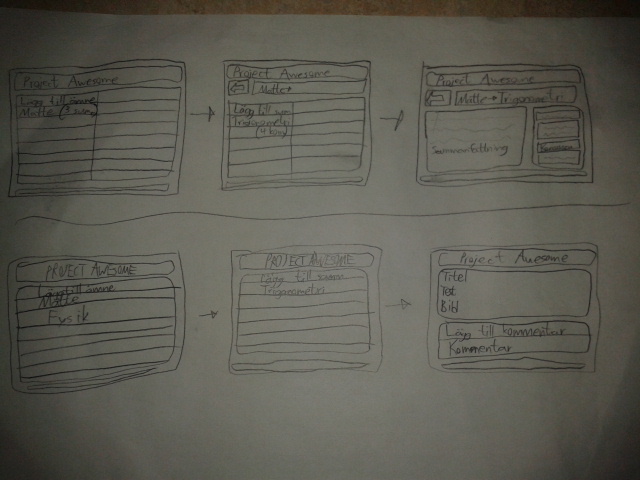 Project Awesome
Lägg till ämne
Matte
Project Awesome
Matte→
Lägg till
Trigonometri
Project Awesome
Matte→Trigonometri
Sammanfattning
PROJECT AWESOME
Lägg till ämne
Matte
Fysik
PROJECT AWESOME
Lägg till
Trigonometri
Project Awesome
Titel
Text
Bild
Lägg till kommentar
Kommentar